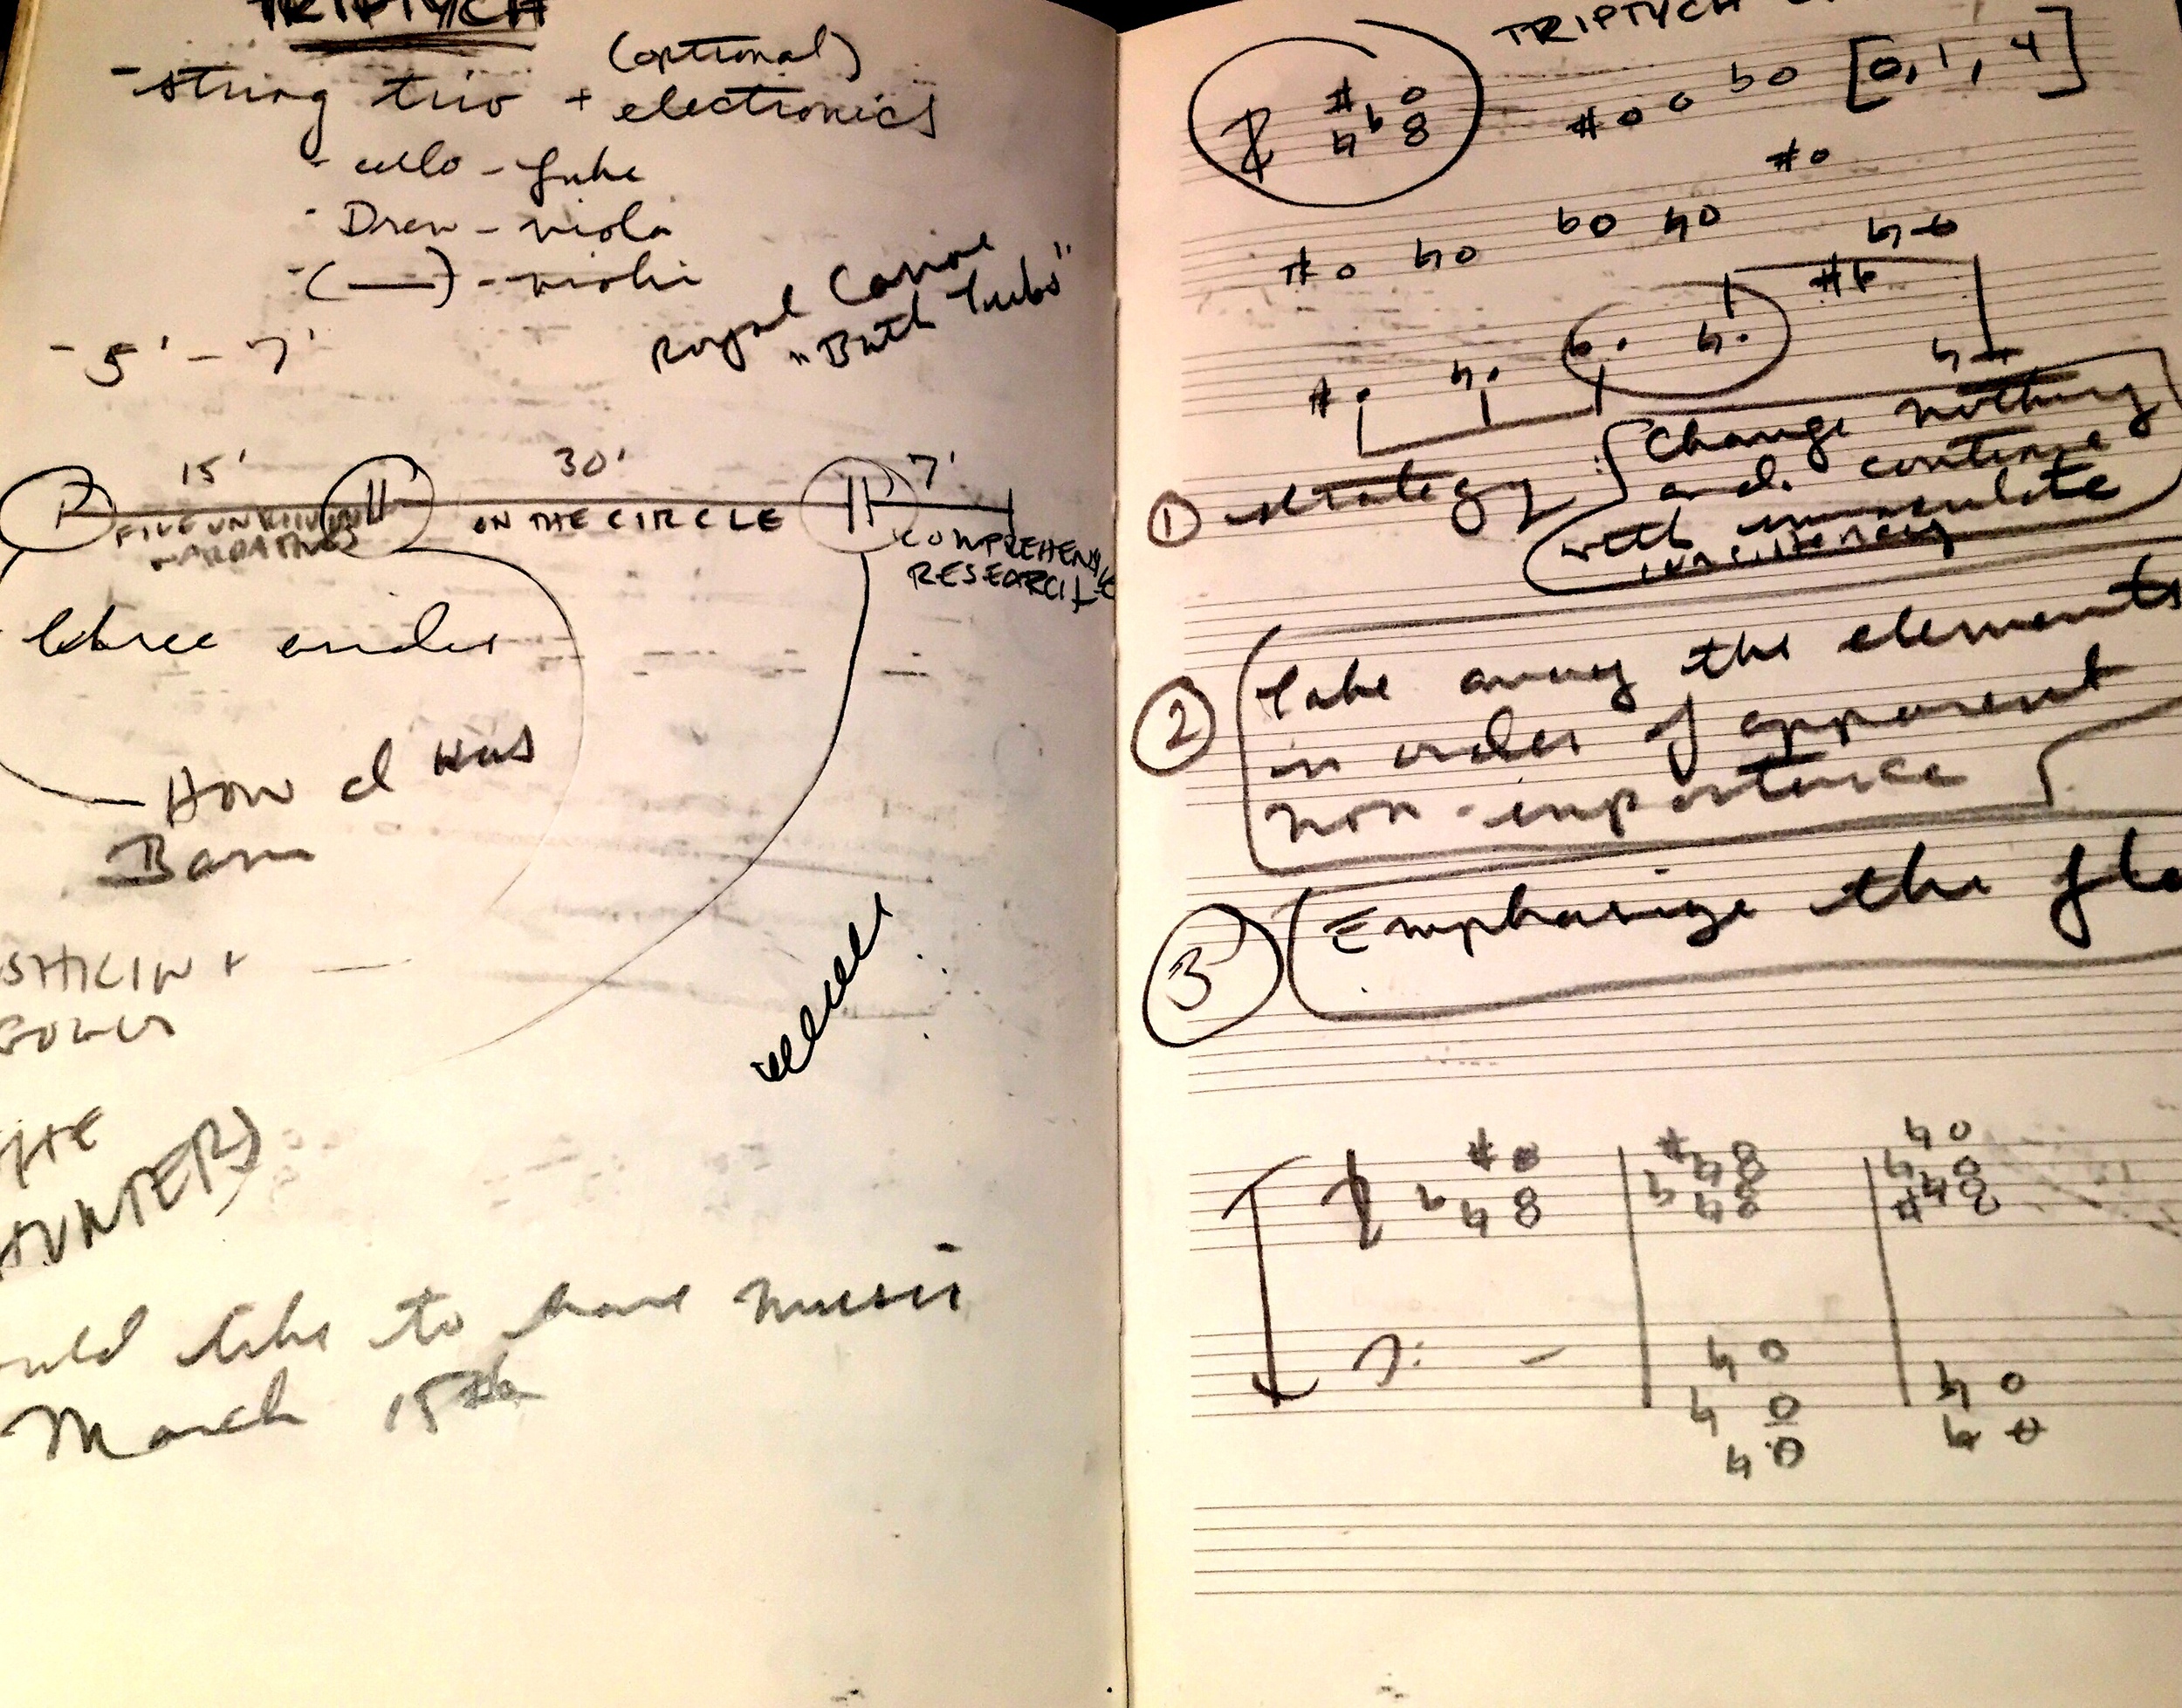 TRIPTYCH
(optional)
- string trio + electronics
- cello - Luke
- Drew - viola
- (—) - violin
- 5' - 7'
Royal
"Bath Tubs"
15'
30'
7'
FIVE UNKNOWN
NARRATIVES
ON THE CIRCLE
COMPREHENSIVE
RESEARCH
three
How I Was
THE
would like to have music
March 15th
TRIPTYCH
[0, 1, 4]
① strategy : Change nothing
and continue
with immaculate
consistency
② Take away the elements
in order of apparent
non-importance
③ Emphasize the